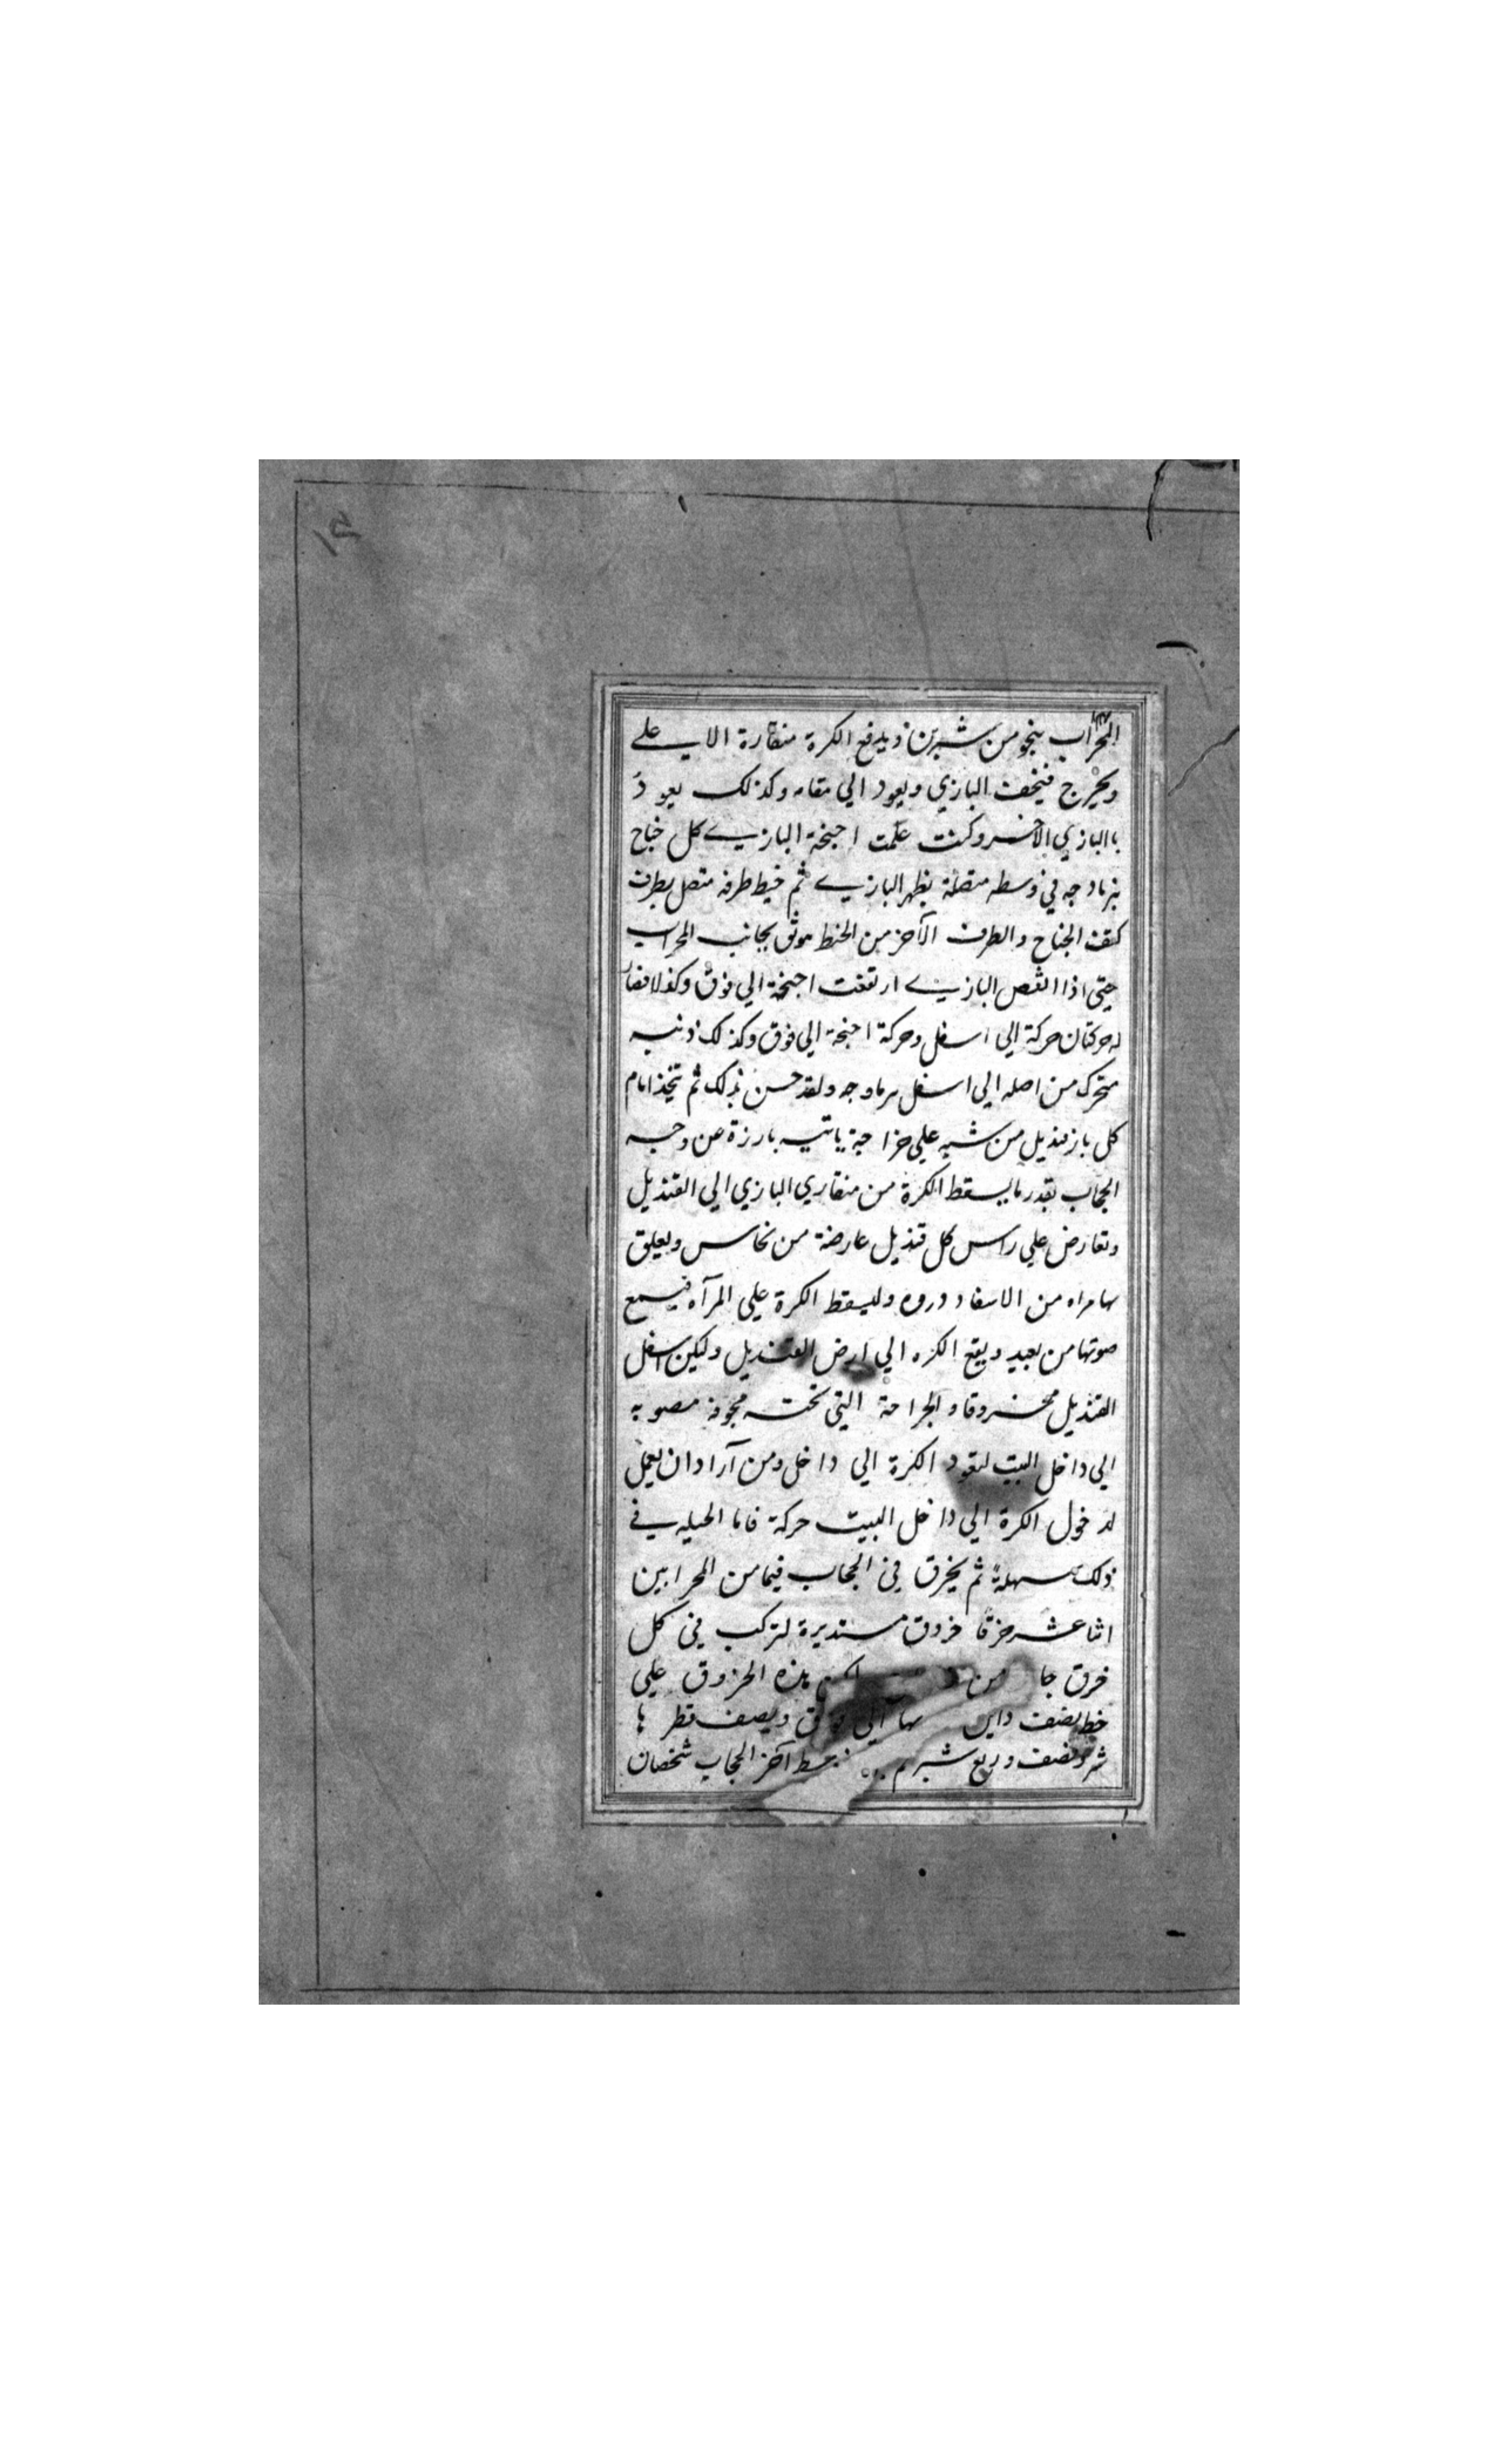 المحراب بنجو من شبرين ويدفع الكرة منقارة الا على
ويخرج فيخف البازي ويعود الي مقامه وكذلك يعود
باالبازي الآخر وكنت علمت اجنحة البازي كل جناح
بنرمادجه في وسطه متصلة بظهر البازي ثم خيط طرفه متصل بطرف
كتف الجناح والطرف الآخر من الخيط موثق بجانب المحراب
حتى اذا انقص البازي ارتفعت اجنحة الي فوق وكذلا فصار
له حركتان حركة الي اسفل وحركة اجنحة الي فوق وكذلك ذنبه
متحرك من اصله الي اسفل برماوجه ولقد حسن ذلك ثم تتخذ امام
كل باز قنديل من شبه علي خراجة ياتيه بارزة عن وجه
الحجاب بقدر ما يسقط الكرة من منقاري البازي الي القنديل
وتعارض علي راس كل قنديل عارضة من نحاس ويعلق
بها مراه من الاسفاد دروه وليسقط الكرة علي المرآه فيسمع
صوتها من بعيد ويقع الكره الي ارض القنديل وليكن اسفل
القنديل مخروقا والجراحة التي تحته مجوفة مصوبه
الي داخل البيت لتعود الكرة الي داخل ومن آراد ان يعمل
لدخول الكرة الي داخل البيت حركة فاما الحيله في
ذلك سهلة ثم يخرق في الحجاب فيما من المحرابين
اثنا عشر خرقا خروق مستديرة لتركب في كل
خرق جا من هذه الخروق علي
خط نصف داير بها الي فوق ونصف قطرها
شبر ونصف وربع شبر ثم آخر الحجاب شخصان